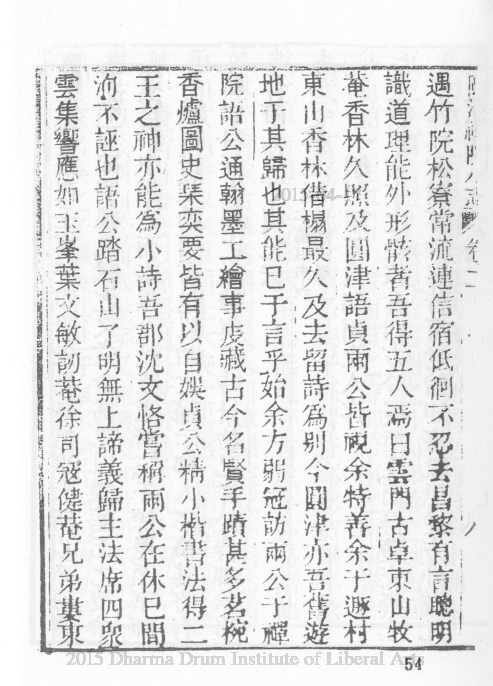 遇竹院松寮常流連信宿低徊不忍去昌黎有言聰明
識道理能外形骸者吾得五人焉曰雲門古卓東山牧
菴香林久照及圓津語貞兩公皆視余特善余于邇村
東山香林借榻最久及去留詩為別今圓津亦吾舊遊
地于其歸也其能已于言乎始余方弱冠訪兩公于禪
院語公通翰墨工繪事庋藏古今名賢手蹟甚多茗椀
香爐圖史琹奕要皆有以自娛貞公精小楷書法得二
王之神亦能為小詩吾郡沈文恪嘗稱兩公在休已間
洵不誣也語公踏石山了明無上諦義歸主法席四衆
雲集響應如玉峯葉文敏訒菴徐司寇健菴兄弟婁東
54
2015 Dharma Drum Institute of Liberal Arts